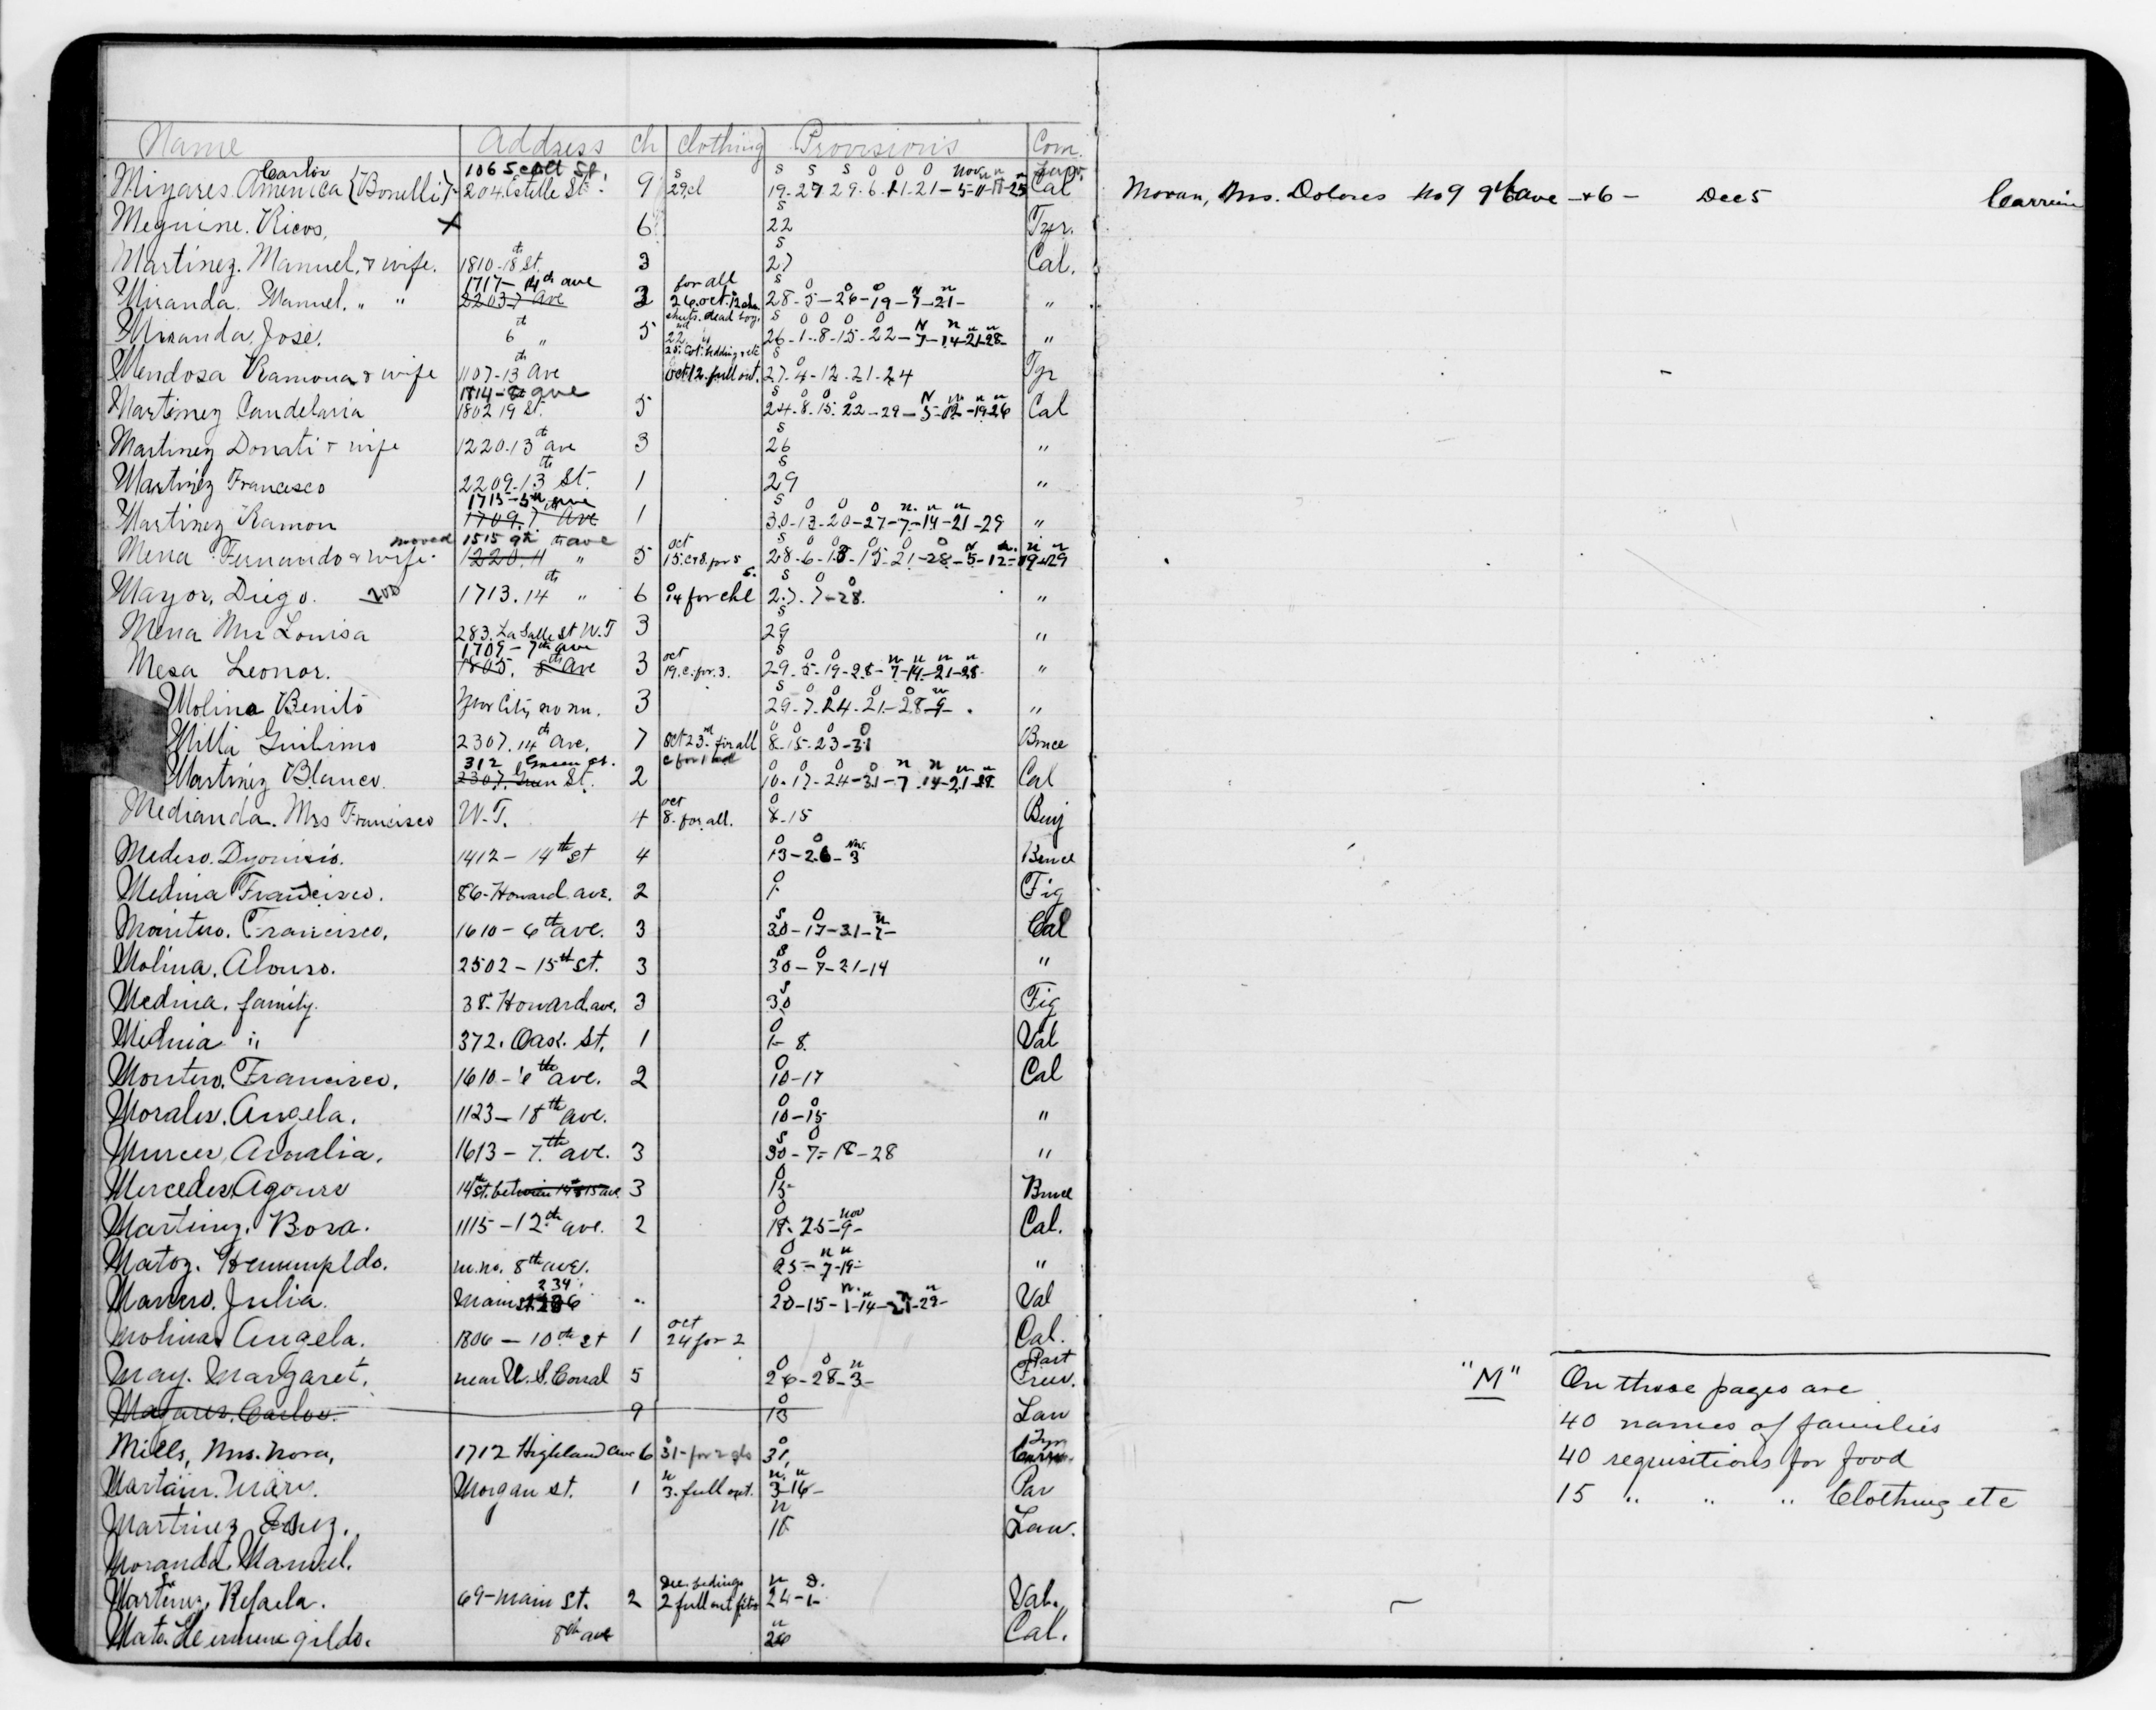 Name Address Ch Clothing Provisions Com.
Carlos 106 Scott St.
Miyares America (Bonelli) 204. Estelle St. 9 29.cl 19-27 29-6-11-21-5-11-18-25 Cal
Meguine. Ricos, X 6 22 Tyr.
Martinez. Manuel, & wife. 1810-18 St. 3 27 Cal.
1717-14th ave for all
Miranda. Manuel. " " 2203 7 Ave 3 26. oct. 12 28-5-26-19-7-21- "
Miranda, Jose. 6th " 5 26-1-8-15-22-7-14-21-28- "
Mendosa Ramona & wife 1107-13th Ave Oct 12. full out. 27-4-12-21-24 Tyr
1814- ave
Martinez Candelaria 1802 19 St. 5 24-8-15-22-29-5-12-19-26 Cal
Martinez Donati & wife 1220.13th ave 3 26 "
Martinez Francisco 2209.13th St. 1 29 "
1715-5th ave
Martinez Ramon 1709.7th Ave 1 30-13-20-27-7-14-21-29 "
moved 1515 9th ave oct
Mena Fernando & wife. 1220.11 " 5 28-6-13-15-21-28-5-12-19-29
Mayor, Diego. 1713.14th " 6 14 for chl 27-7-28. "
Mena Mrs Louisa 283. La Salle St W.T 3 29 "
1709-7th ave oct
Mesa Leonor. 1805. 8th Ave 3 19.c.for.3. 29-5-19-28-7-14-21-28- "
Molina Benito Ybor City no nu. 3 29-7-14-21-28-9- "
Milla Guilimo 2307.14th Ave. 7 Oct 23rd for all 8-15-23-31 Bruce
312 Green st. c for 1
Martinez Blanco. 2307. Green St. 2 10-17-24-31-7-14-21-28 Cal
Medianda. Mrs Francisco W.T. 4 oct 8. for all. 8-15 Benj
Mederos. Dyonisio. 1412-14th st 4 13-26-3 Bruce
Medina Francisco. 86-Howard ave. 2 1- Fig
Montero. Francisco. 1610-6th ave. 3 30-17-31-7- Cal
Molina. Alonso. 2502-15th st. 3 30-7-21-14 "
Medina. family. 38-Howard ave. 3 30 Fig
Medina " 372. Oak. St. 1 1-8. Val
Montero. Francisco. 1610-6th ave. 2 10-17 Cal
Morales. Angela. 1123-18th ave. 10-15 "
Murces, Amalia. 1613-7th ave. 3 30-7-18-28 "
Mercedes, Agouro 14th st. between 14 & 15 ave. 3 15- Bruce
Martinez. Bora. 1115-12th ave. 2 18-25-9- Cal.
Matoz. n.no. 8th ave. 25-7-19- "
234
Marrero. Julia. Main st. 236 " 20-15-1-14-21-29- Val
oct
Molinas Angela. 1806-10th st 1 24 for 2 Cal.
May. Margaret. near U.S. Corral 5 26-28-3- Past Preev.
Majares. Carlos. 9 13 Law
Mills, Mrs. Nora, 1712 Highland ave 6 31-for 2 31, Tyr
Martain. Mary. Morgan st. 1 3. full out. 3-16- Par
Martinez Inez. 18 Law.
Moranda Manuel.
Dec. bedings
Martinez, Refaela. 69-main st. 2 2 full out fits 24-1- Val.
Mata Hermenegildo. 8th ave 26 Cal.
Moran, Mrs. Dolores No 9 9th ave -6- Dec 5
"M" On these pages are
40 names of families
40 requisitions for food
15 " " " Clothing etc